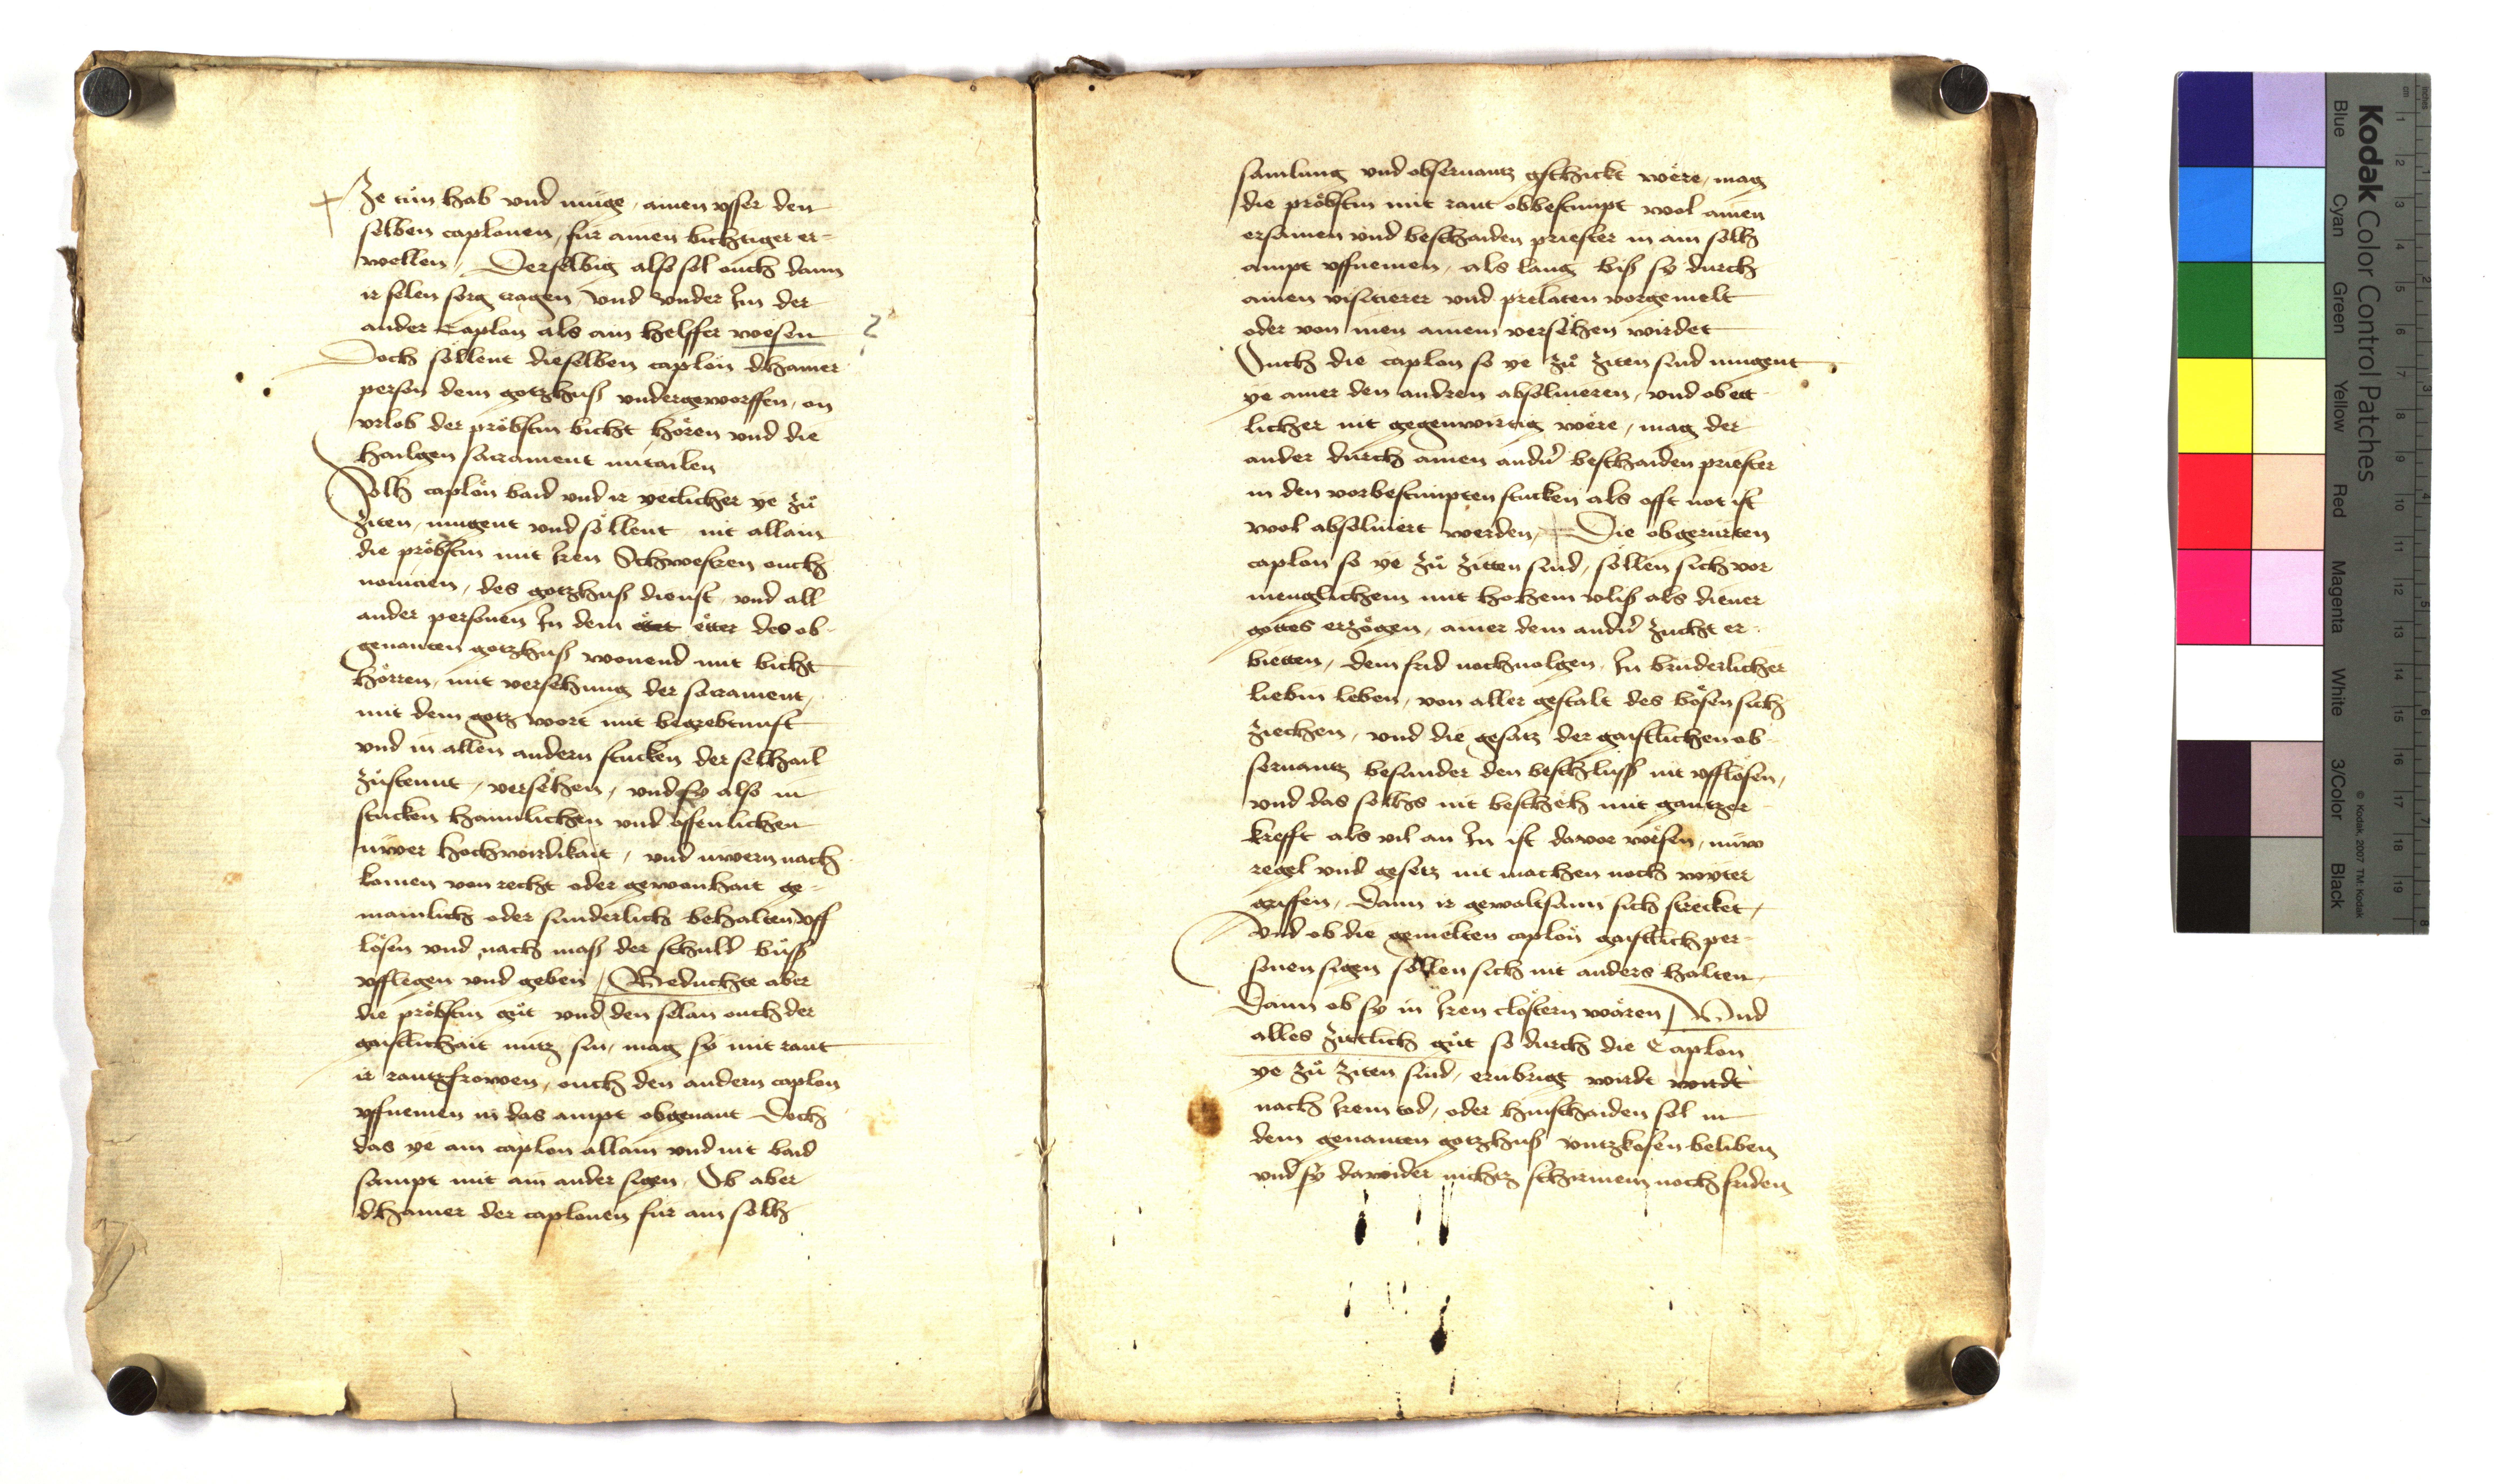 Ze tůn hab vnd müge, ainen vsser den
selben caplonen, für ainen bichtiger er-
wellen, Derselbig also sol ouch dann
ir selen sorg tragen, vnd vnder Im der
ander Caplon als ain helffer wesen
Doch söllent dieselben caplön dhainer
person dem gotzhuß vndergeworffen, on
vrlob der pröbstin bicht hören vnd die
hailgen sacrament mitailen
Solh caplön baid vnd ir yetlicher ye zů
ziten, mugent vnd söllent nit allain
die pröbstin mit Iren Schwestren ouch
nouicien, des gotzhuß dienst, vnd all
ander personen In dem etter des ob-
genanten gotzhuß wonend mit bicht
hörren, mit versehung der sacrament,
mit dem gotz wort mit begrebtnust
vnd in allen andern stucken der selhail
zůstennt, versehen, vnd sy also in
stucken haimlichen vnd offenlichen
üwer hochwirdikait, vnd üwern nach
komen von recht oder gewonhait ge-
mainlich oder sunderlich behalten vff
lösen vnd nach maß der schuld bůß
vfflegen vnd geben, Beduchte aber
die pröbstin gůt vnd den selan ouch der
gaistlichait nutz sin, mag sy mit raut
ir rautzfrowen, ouch den andern caplon
vffnemen in das ampt obgenant Doch
das ye ain caplon allain vnd nit baid
sampt mit ain ander sigen, Ob aber
dhainer der caplonen für ain solh
samlung vnd obseruantz gschickt wäre, mag
die pröbstin mit raut obbestimpt wol ainen
ersamen vnd beschaiden priester in ain sollh
ampt vffnemen, als lang biß sy durch
ainen visitierer vnd prelaten vorgemelt
oder von inen ainem versehen wirdet
Ouch die caplon so ye zů ziten sind mugent
ye ainer den andren absoluieren, vnd ob ett
licher nit gegenwirtig wäre, mag der
ander durch ainen andern beschaiden priester
in den vorbestimpten stucken als offt not ist
wol absoluiert werden, Die obgerürten
caplon so ye zů zitten sind, söllen sich vor
menglichem mit hohem vliß als diener
gottes erzögen, ainer dem andern zucht er-
bietten, dem frid nochuolgen, In brüderlicher
liebin leben, von aller gestalt des bösen sich
ziechen, vnd die gesatz der gaistlichen ob-
seruantz besunder den beschluß nit vfflösen,
vnd das sollhs nit bescheh mit gantzer
krefft als vil an In ist davor wesen, nüw
regel vnd gesetz nit machen noch wyter
griffen, dann ir gewaltsami sich strecket,
vnd ob die gemelten caplön gaistlich per-
sonen sigen söllen sich nit anders halten,
Dann ob sy in Iren clöstern wären, Vnd
alles zittlich gůt so durch die Caplon
ye zů ziten sind, erübrigt wirdt wirdt
nach Irem tod, oder hinschaiden sol in
dem genanten gotzhuß beliben
vnd sy dawider nichtz schirmem noch friden